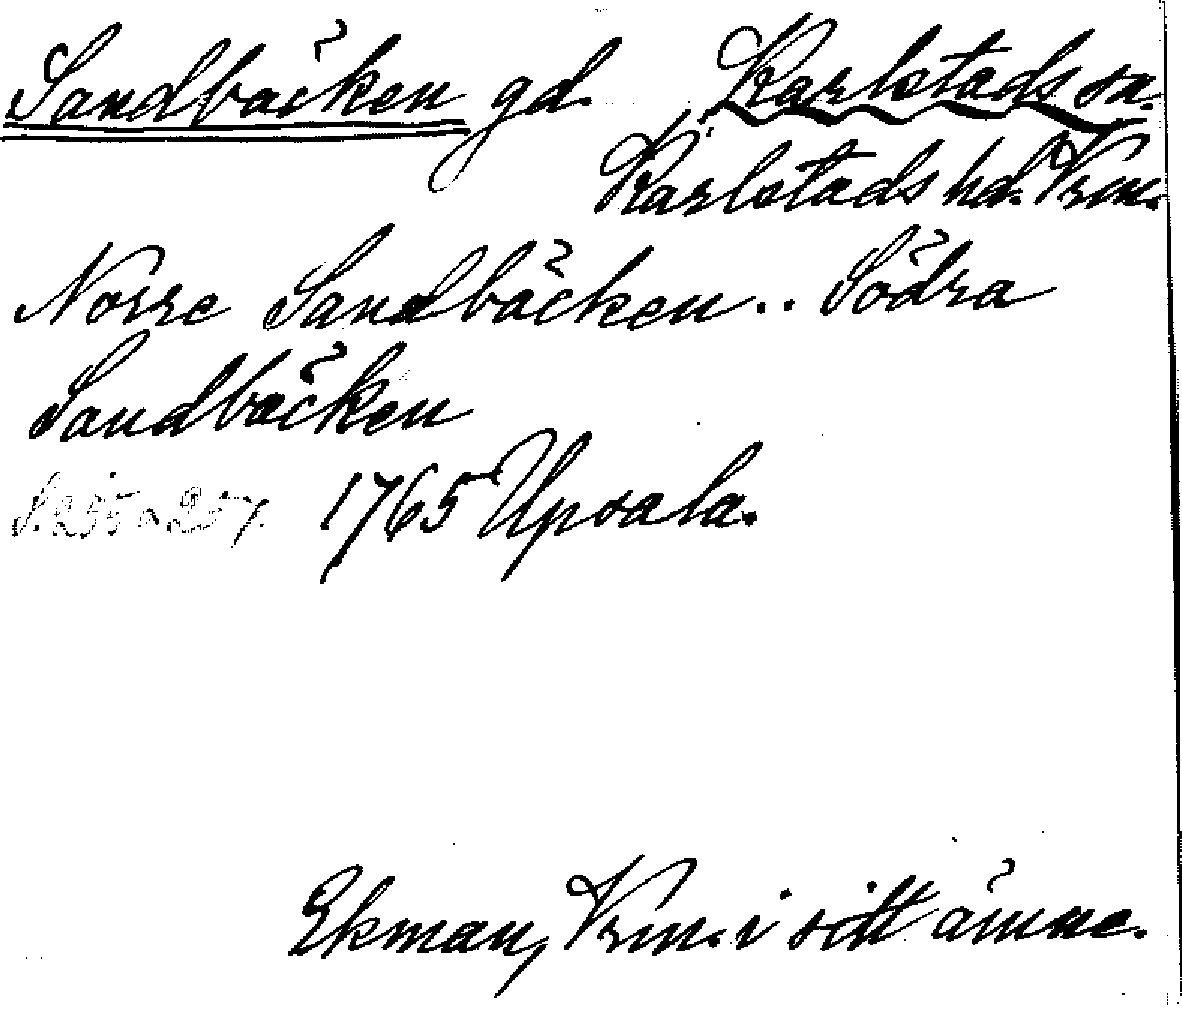 Sandbäcken gd. Karlstads sn.
Karlstads hd. Vrm.
Norre Sandbäcken.. Södra
Sandbäcken
S. 255 o 257. 1765 Upsala.
Ekman, Vrm. i sitt ämne.